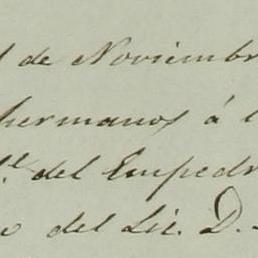 de Noviembr
hermanos á l
del Empedr
o del Lic. D.